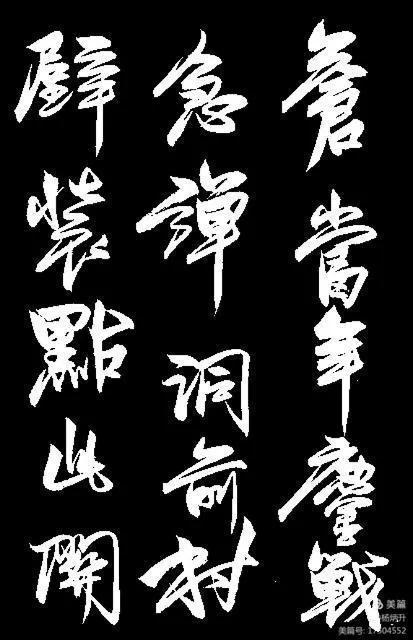 蒼當年鏖戰
急彈洞前村
壁裝點此關
美篇
杨炳升
美篇号: